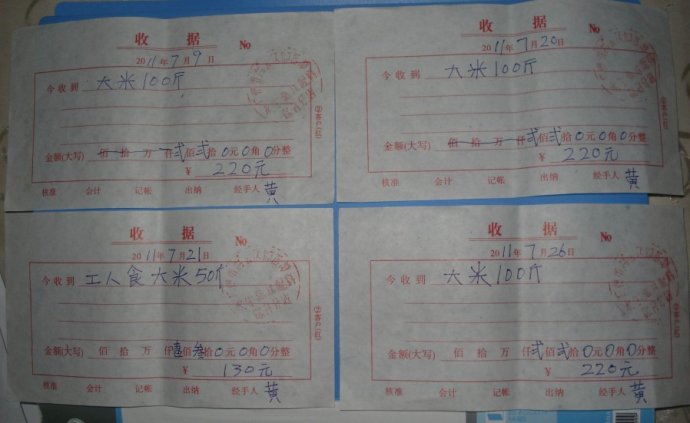 收 据 No
2011年7月9日
今收到 大米100斤
金额(大写) 佰拾万仟贰佰贰拾0元0角0分整
¥ 220元
核准 会计 记帐 出纳 经手人 黄
收 据 No
2011年7月20日
今收到 大米100斤
金额(大写) 佰拾万仟贰佰贰拾0元0角0分整
¥ 220元
核准 会计 记帐 出纳 经手人 黄
收 据 No
2011年7月21日
今收到 工人食大米50斤
金额(大写) 佰拾万仟壹佰叁拾0元0角0分整
¥ 130元
核准 会计 记帐 出纳 经手人 黄
收 据 No
2011年7月26日
今收到 大米100斤
金额(大写) 佰拾万仟贰佰贰拾0元0角0分整
¥ 220元
核准 会计 记帐 出纳 经手人 黄